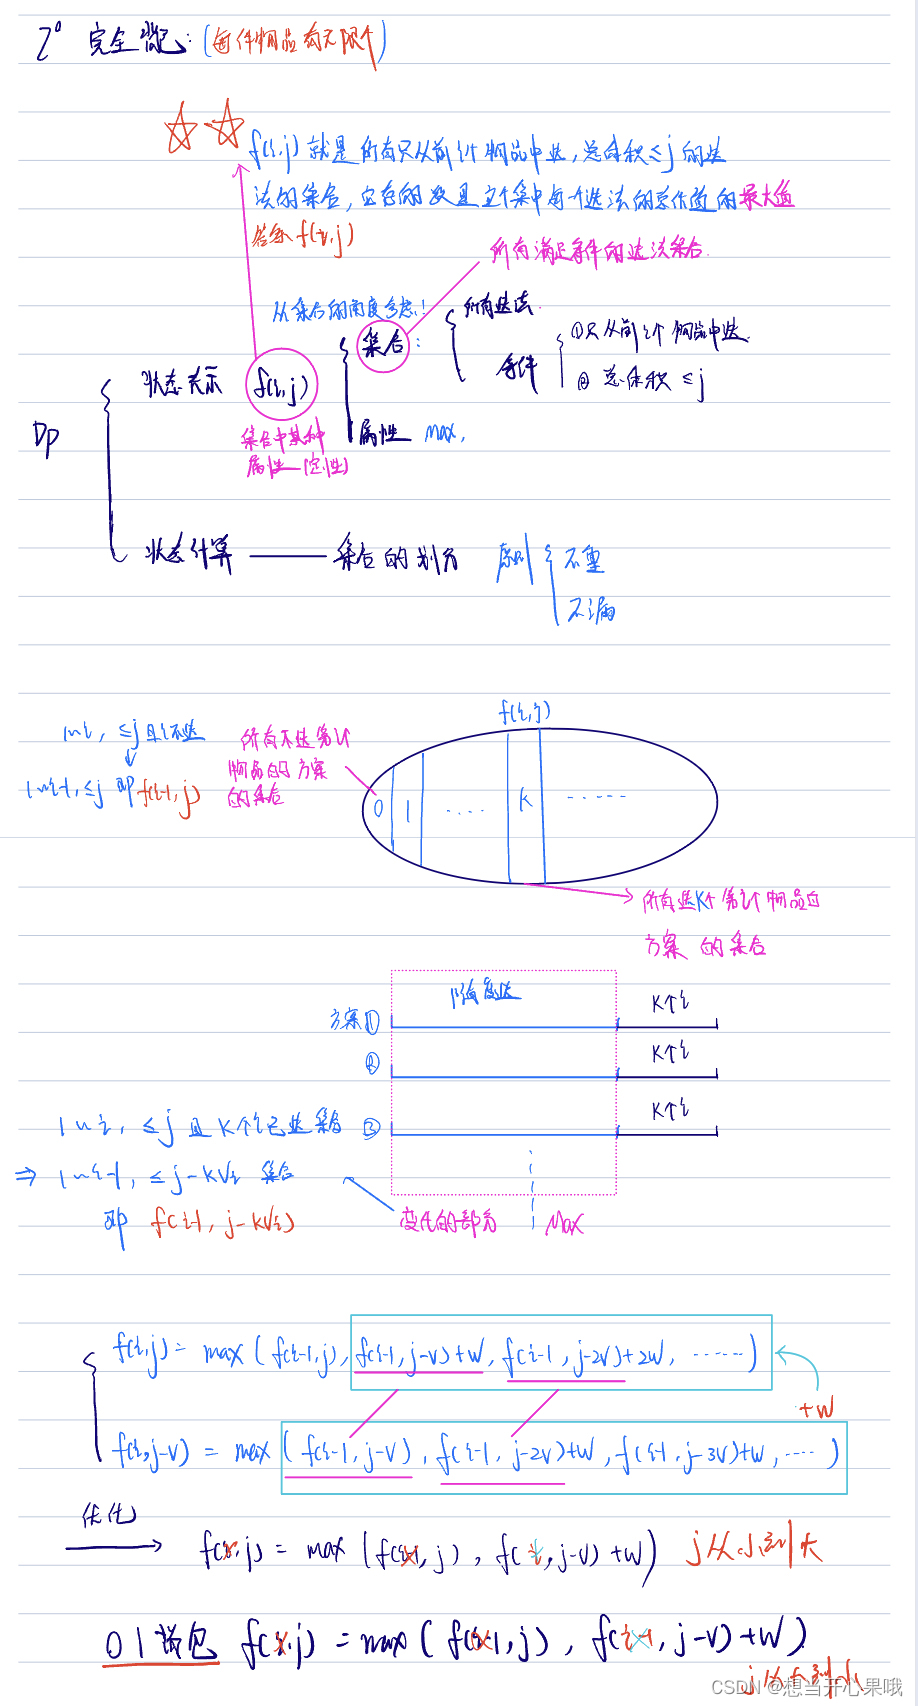 2° 完全背包: (每件物品有无限个)
f(i,j) 就是所有只从前i个物品中选, 总体积≤j的选
法的集合, 它存的数是这个集中每一个选法的总价值的最大值
答案 f(n,j)
所有满足条件的选法集合.
从集合的角度考虑!
所有选法.
集合:
①只从前i个物品中选.
条件
② 总体积 ≤j
状态表示 f(i,j)
DP
属性 max,
集合中某种
属性—(定性)
状态计算 —— 集合的划分 原则 不重
不漏
f(i,j)
1~i, ≤j且i不选
所有不选第i个
物品的方案
的集合
1~i-1, ≤j 即f(i-1,j)
0 1 .... K ......
所有选K个第i个物品的
方案 的集合
随意选
方案① K个i
② K个i
③ K个i
1~i, ≤j 且 K个i已选集合
⇒ 1~i-1, ≤j-KVi 集合
即 f(i-1, j-KVi)
变化的部分 Max
f(i,j) = max (f(i-1,j), f(i-1,j-v)+w, f(i-1,j-2v)+2w, ......)
+w
f(i,j-v) = max (f(i-1,j-v), f(i-1,j-2v)+w, f(i-1,j-3v)+w, ....)
优化
f(i,j) = max (f(i-1,j), f(i,j-v)+w) j从小到大
01背包 f(i,j) = max (f(i-1,j), f(i-1,j-v)+w)
j从大到小
CSDN @想当开心果哦